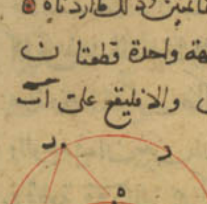 وذلك ما اردناه
جهة واحدة قطعتا ن
والا فليقع على اب
د د
ه